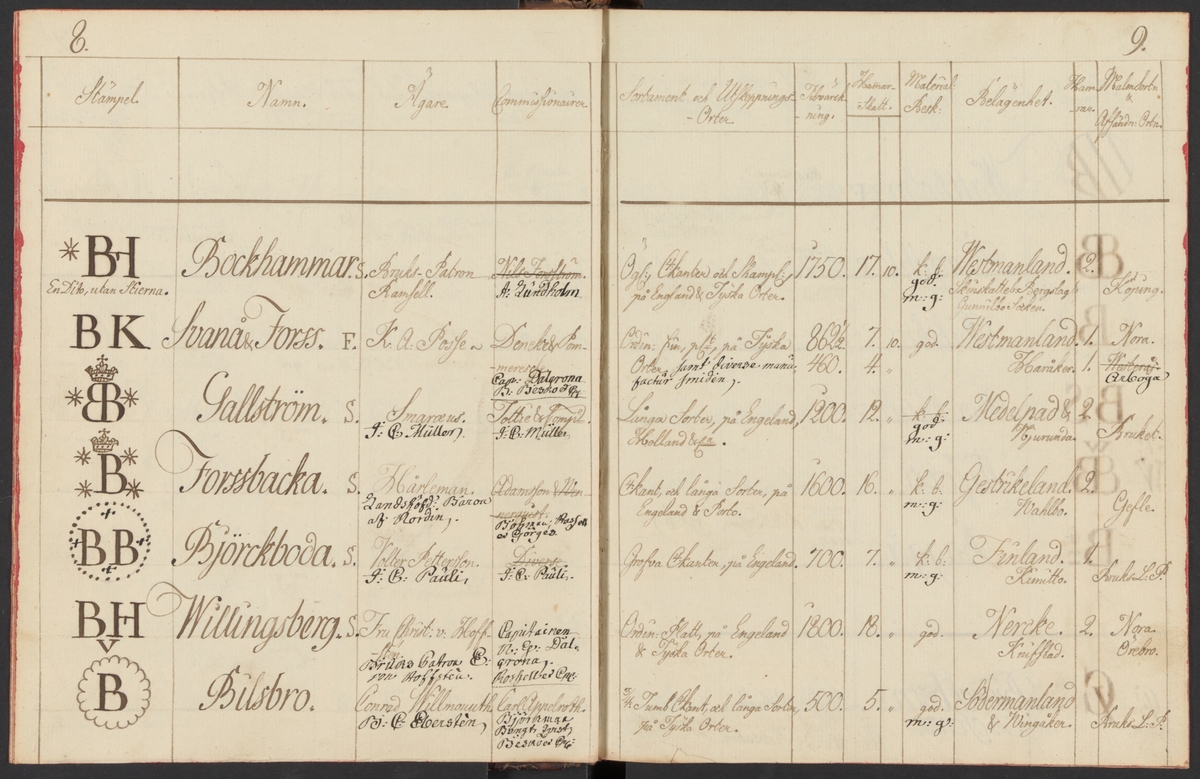 8.
Stämpel.
Namn.
Ägare.
Commissionairer
BH
En Dito, utan Stierna.
Beckhammar. S.
Bruks-Patron
Ramsell.
Nils Forsström.
A: Lundholm
BK
Svanå & Forss. F.
K. A. Posse
Deneke & Pom-
meresche
Cap: Dalgrona
BB
Gallström. S.
Smaræus.
J: C: Müller,
Tottie & Compt.
J: C: Müller
B
Forssbacka. S.
Hårleman.
Landshöfd: Baron
af Nordin,
Adamsson & Wen-
nerqvist.
Bohman, Hassel
BB
Björckboda. S.
Wolter Petterson.
J: C: Pauli,
Divers
J: C: Pauli,
BH
V
Willingsberg. S.
Fru Christ: v: Hoff-
sten
Bruks Patron C:
von Hoffsten.
Capitainen
N: Ep: Dal-
grona,
B
Bilsbro.
Conrad Willmouuth
B: C: Eversten,
Carl Appelroth.
Björkman
Bengt: Qvist,
9.
Sortament och Utskeppnings-
-Orter
Tilvärck-
ning.
Hamar-
Skatt.
Material
Besk:
Belägenhet.
Ham-
rar.
Malmortn
&
Afsändn: Ortn.
Ögl: Ekanten och Stampl:
på Engeland & Tyska Orter.
1750.
17.
10.
k: b.
god.
m: g:
Westmanland.
Skinskatteberg Bergslag
Gunnilbo Socken.
2.
Köping.
Ordin: fin, på Tyska
Orter, samt diverse manu
factur smiden,
862½
460.
7.
4.
10.
"
god.
Westmanland.
Haråker.
1.
1.
Nora.
Westerås
Arboga
Långa Sorter, på Engeland,
Holland & ca.
1200.
12.
"
k: b:
god.
m: g:
Medelpad &
Njurunda.
2.
Bruket.
Ekant, och långa Sorter, på
Engeland & Porto.
1600.
16.
"
k: b.
m: g:
Gestrikeland.
Wahlbo.
2.
Gefle.
Grofva Ekanten, på Engeland.
700.
7.
"
k: b:
m: g:
Finland.
Kimitto.
1.
Bruks L: P.
Ordin: Platt, på Engeland
& Tyska Orter.
1800.
18.
"
god.
Nercke.
Knifstad.
2.
Nora.
Örebro.
¾ Tumb Ekant, och långa Sorter,
på Tyska Orter.
500.
5.
"
god.
m: g:
Södermanland
& Wingåker.
Bruks L: P.